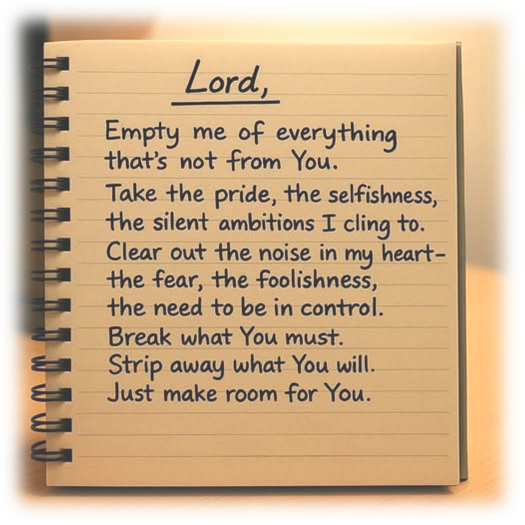 Lord,
Empty me of everything
that's not from You.
Take the pride, the selfishness,
the silent ambitions I cling to.
Clear out the noise in my heart–
the fear, the foolishness,
the need to be in control.
Break what You must.
Strip away what You will.
Just make room for You.